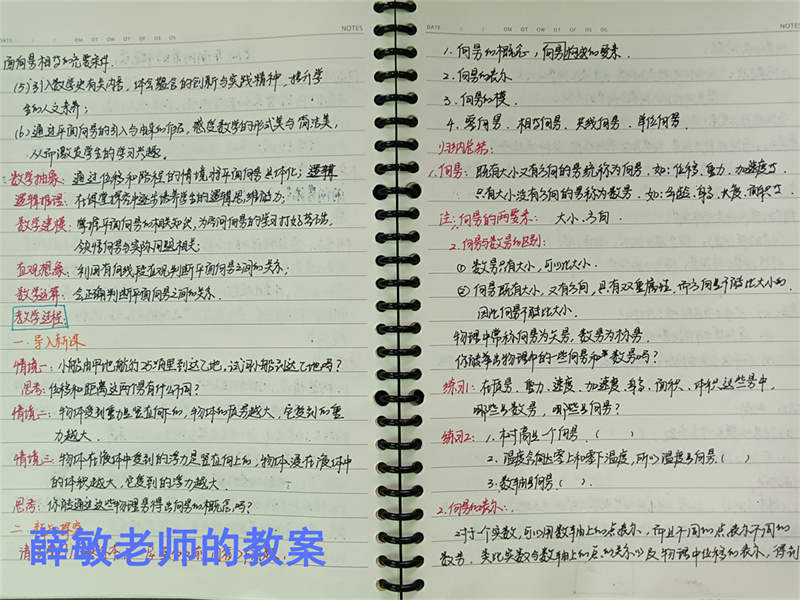 DATE / / OM OT OW OT OF OS OS NOTES
面向量相等的充要条件.
(5)引入数学史有关内容，体会蕴含的创新与实践精神，提升学
生的人文素养；
(6)通过平面向量的引入与由来的介绍，感受数学的形式美与简洁美，
从而激发学生的学习兴趣.
数学抽象：通过位移和路程的情境将平面向量具体化；逻辑
逻辑推理：在课堂探究中逐步培养学生的逻辑思维能力；
数学建模：掌握平面向量的相关知识，为空间向量的学习打好基础，
向量与实际问题相关；
直观想象：利用有向线段直观判断平面向量之间的关系；
数学运算：会正确判断平面向量之间的关系.
教学过程：
一.导入新课
情境一：小船由甲地航行25海里到达乙地，试问小船到达乙地吗？
思考：位移和距离这两个量有什么不同？
情境二：物体受到重力是竖直向下的，物体的质量越大，它受到的重
力越大.
情境三：物体在液体中受到的浮力是竖直向上的，物体浸在液体中
的体积越大，它受到的浮力越大.
思考：你能通过这些物理量得出向量的概念吗？
二.
薛敏老师的教案
DATE / / OM OT OW OT OF OS OS NOTES
1.向量的概念，向量的要素.
2.向量的表示
3.向量的模.
4.零向量.相等向量.共线向量.单位向量.
归纳总结：
1.向量：既有大小又有方向的量统称为向量.如：位移、重力、加速度等
只有大小没有方向的量称为数量.如：年龄、身高、长度、面积等.
注：向量的两要素：大小、方向
2.向量与数量的区别：
① 数量只有大小，可以比大小.
② 向量既有大小，又有方向，具有双重属性，而方向是不能比大小的，
因此向量不能比大小.
物理中常称向量为矢量，数量为标量.
你能举出物理中的一些向量和数量吗？
练习1：在质量、重力、速度、加速度、身高、面积、体积这些量中，
哪些是数量，哪些是向量？
练习2：1.身高是一个向量.( )
2.温度含零上和零下温度，所以温度是向量( )
3.数轴是向量( ).
2.向量的表示：
对于一个实数，可以用数轴上的点表示，而且不同的点表示不同的
数量.类比实数与数轴上的点的表示以及物理中位移的表示，得到